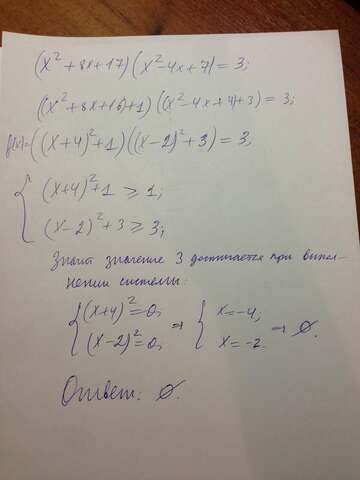 (x² + 8x + 17)(x² - 4x + 7) = 3;
(x² + 8x + 16) + 1)((x² - 4x + 4) + 3) = 3;
f(x) = ((x + 4)² + 1)((x - 2)² + 3) = 3;
(x + 4)² + 1 ≥ 1;
(x - 2)² + 3 ≥ 3;
Значит значение 3 достигается при выпол-
нении системы:
{(x + 4)² = 0, ⇒ {x = -4;
(x - 2)² = 0, x = -2. ⇒ ∅.
Ответ: ∅.